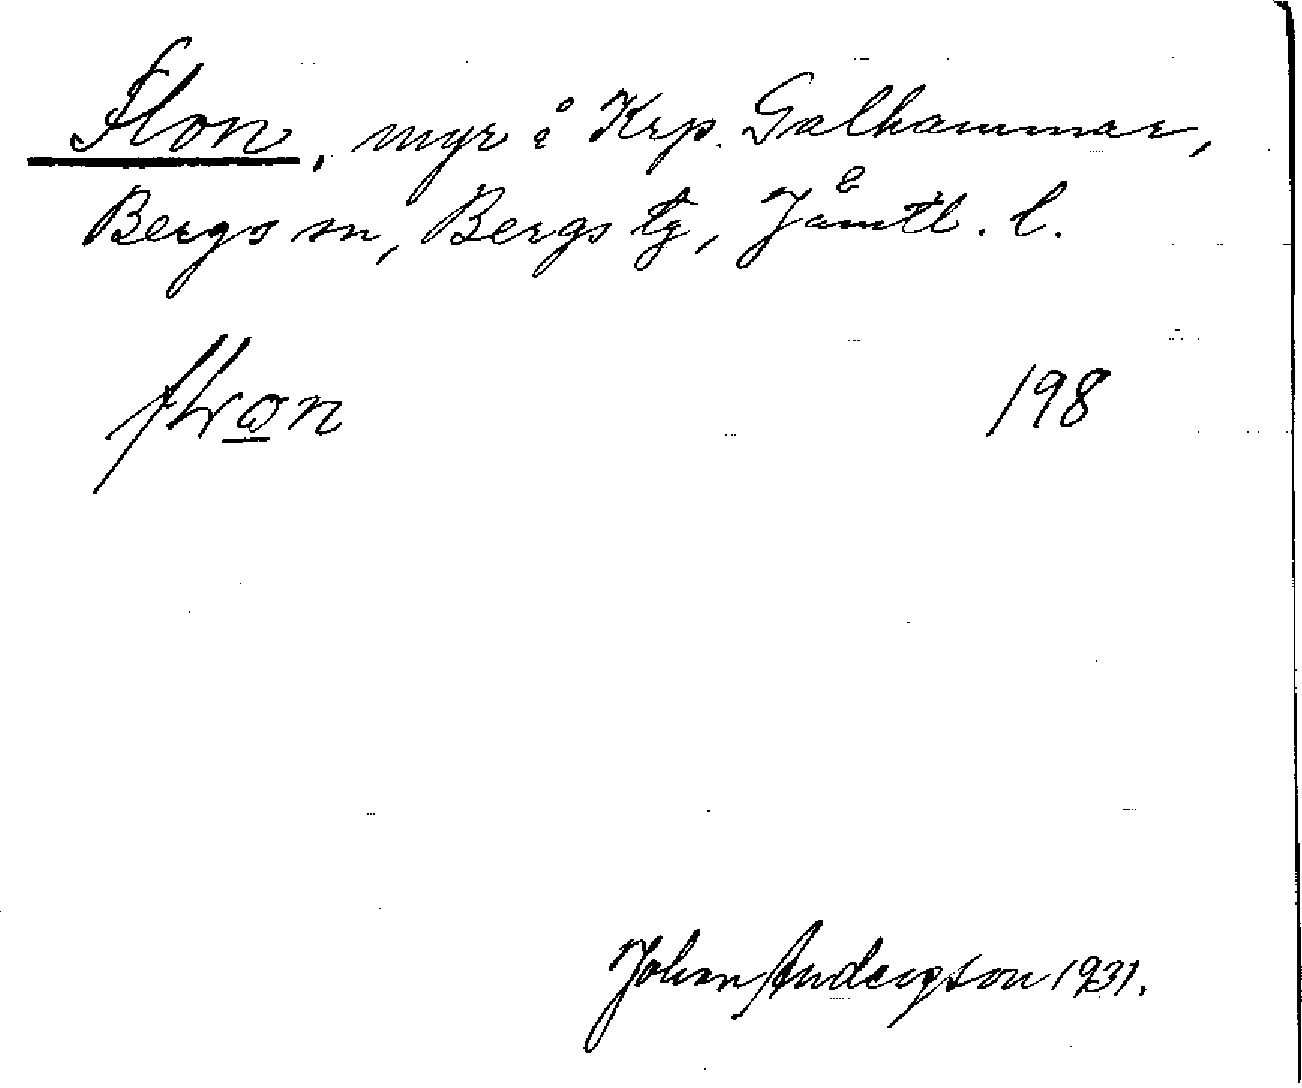 Flon, myr å Krp. Galhammar,
Bergs sn, Bergs tg, Jämtl. l.
198
John Andersson 1931.